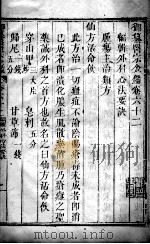 御纂醫宗金鑑卷六十二
編輯外科心法要訣
癰瘍主治類方
仙方活命飲
此方治一切瘡疽不論陰陽毒未成者即消
已成者即潰化膿生肌散瘀消腫乃瘡癰之聖
藥誠外科之首方也故名之曰仙方活命飲
穿山甲三大片 皂刺五分
歸尾一錢五分 甘草節一錢